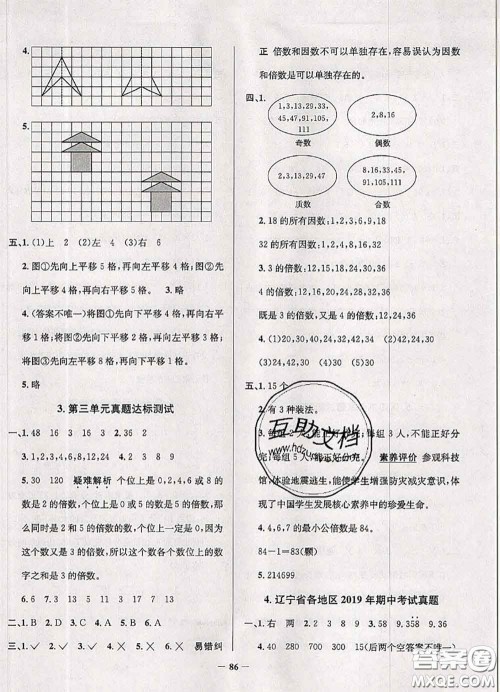 4.
5.
五、1.(1)上 2 (2)左 4 (3)右 6
2.图①先向上平移5格,再向左平移4格;图②先向上平移5格,再向右平移4格。 3.略
4.(答案不唯一)将图①先向下平移3格,再向右平移1格;将图②先向下平移8格,再向左平移4格。
5.略
3.第三单元真题达标测试
一、1.48 16 3 16 3 2.
3.13 15 2 4.1 2 3 8 9
5.30 120 疑难解析 个位上是0,2,4,6或8的数是2的倍数,个位上是0或5的数是5的倍数,那么同时是2和5的倍数的数,个位上一定是0。因为这个数又是3的倍数,因此这个数各个数位上的数字之和是3的倍数。
6.6 7.12 13 14 8.1 2 9.36
二、1.D 2.B 3.A 4.C 5.A 6.C
三、1.✓ 2.✓ 3.× 4.× 5.× 6.× 易错纠
正 倍数和因数不可以单独存在,容易误认为因数
和倍数是可以单独存在的。
四、1.
1,3,13,29,33,
45,47,91,105,
111
奇数
2,8,16
偶数
2,3,13,29,47
质数
8,16,33,45,
91,105,111
合数
2.18的所有因数:1,2,3,6,9,18
32的所有因数:1,2,4,8,16,32
3.3的倍数:
既是3的倍数,又是4的倍数:12,24,36
4.(1)20,24,42,30 (2)24,42,30
(3)20,30 (4)30
五、1.15个
2.有3种装法。
素养评价 参观科技
馆,体验地震逃生,能使学生增强防灾减灾意识,体
现了中国学生发展核心素养中的珍爱生命。
4.4,6,7的最小公倍数是84。
84-1=83(颗)
5.214699
4.辽宁省各地区2019年期中考试真题
一、1.右 两 2.4 9 3.9.358 9.36
4.40 280 700 15(后两个空答案不唯一)
— 86 —
互助文档
答案圈
MXQE.COM